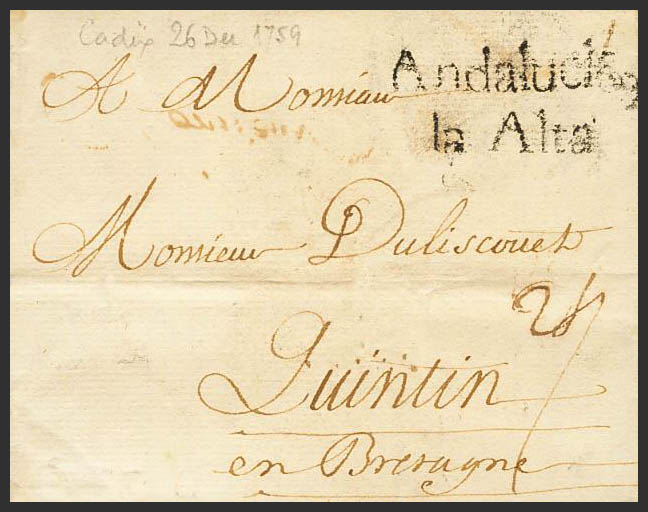 Cadix 26 Dec 1759
Andalucia
la Alta
A Monsieur
Monsieur Duliscouet
Quintin
en Bretagne